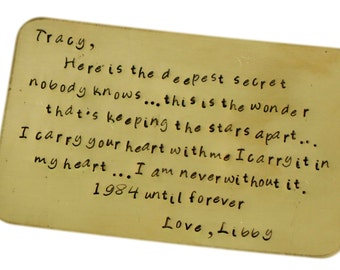 Tracy,
Here is the deepest secret
nobody knows...this is the wonder
that's keeping the stars apart...
I carry your heart with me I carry it in
my heart... I am never without it.
1984 until forever
Love, Libby